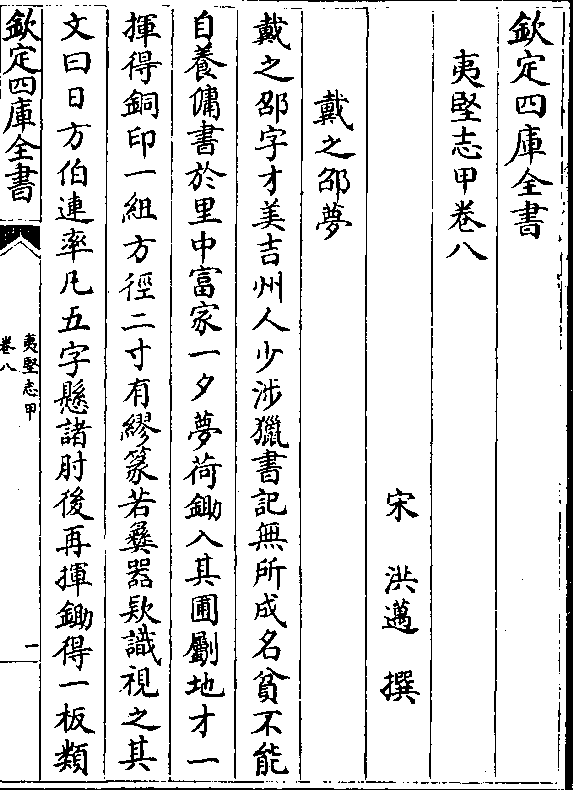 欽定四庫全書
夷堅志甲卷八
宋 洪邁 撰
戴之邵夢
戴之邵字才美吉州人少涉獵書記無所成名貧不能
自養傭書於里中富家一夕夢荷鋤入其圃劚地才一
揮得銅印一組方徑二寸有繆篆若彝器款識視之其
文曰日方伯連率凡五字懸諸肘後再揮鋤得一板類
欽定四庫全書
夷堅志甲
卷八
一